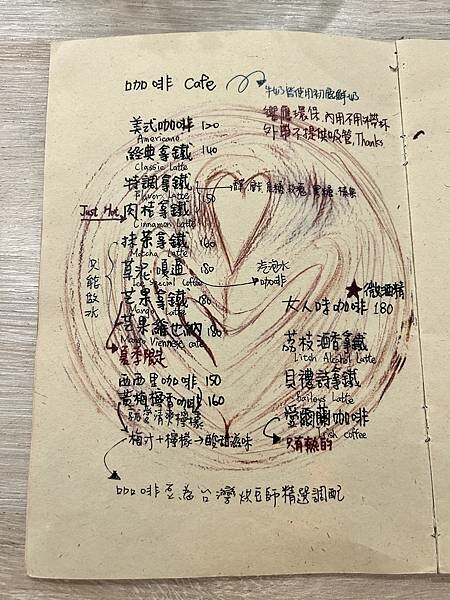 咖啡 Cafe
牛奶皆使用初鹿鮮奶
響應環保,內用不用
外帶不提供吸管,Thanks
美式咖啡 120
Americano
經典拿鐵 140
Classic Latte
特調拿鐵
Flavor Latte 150
Just Hot
肉桂拿鐵
Cinnamon Latte
抹茶拿鐵 160
Matcha Latte
草泥嘎逼 180
Ice Special Coffee
汽泡水
咖啡
芒果拿鐵 180
Mango Latte
芒果維也納 180
Mango Viennese cafe
夏季限定
只能做冰
西西里咖啡 150
黃梅梅香咖啡 160
梅汁+檸檬→酸甜滋味
微酒精
大人味咖啡 180
荔枝酒香拿鐵
Litch Alcohol Latte
貝禮詩拿鐵
Baileys Latte
愛爾蘭咖啡
Irish coffee
只有熱的
咖啡豆為台灣烘豆師精選調配